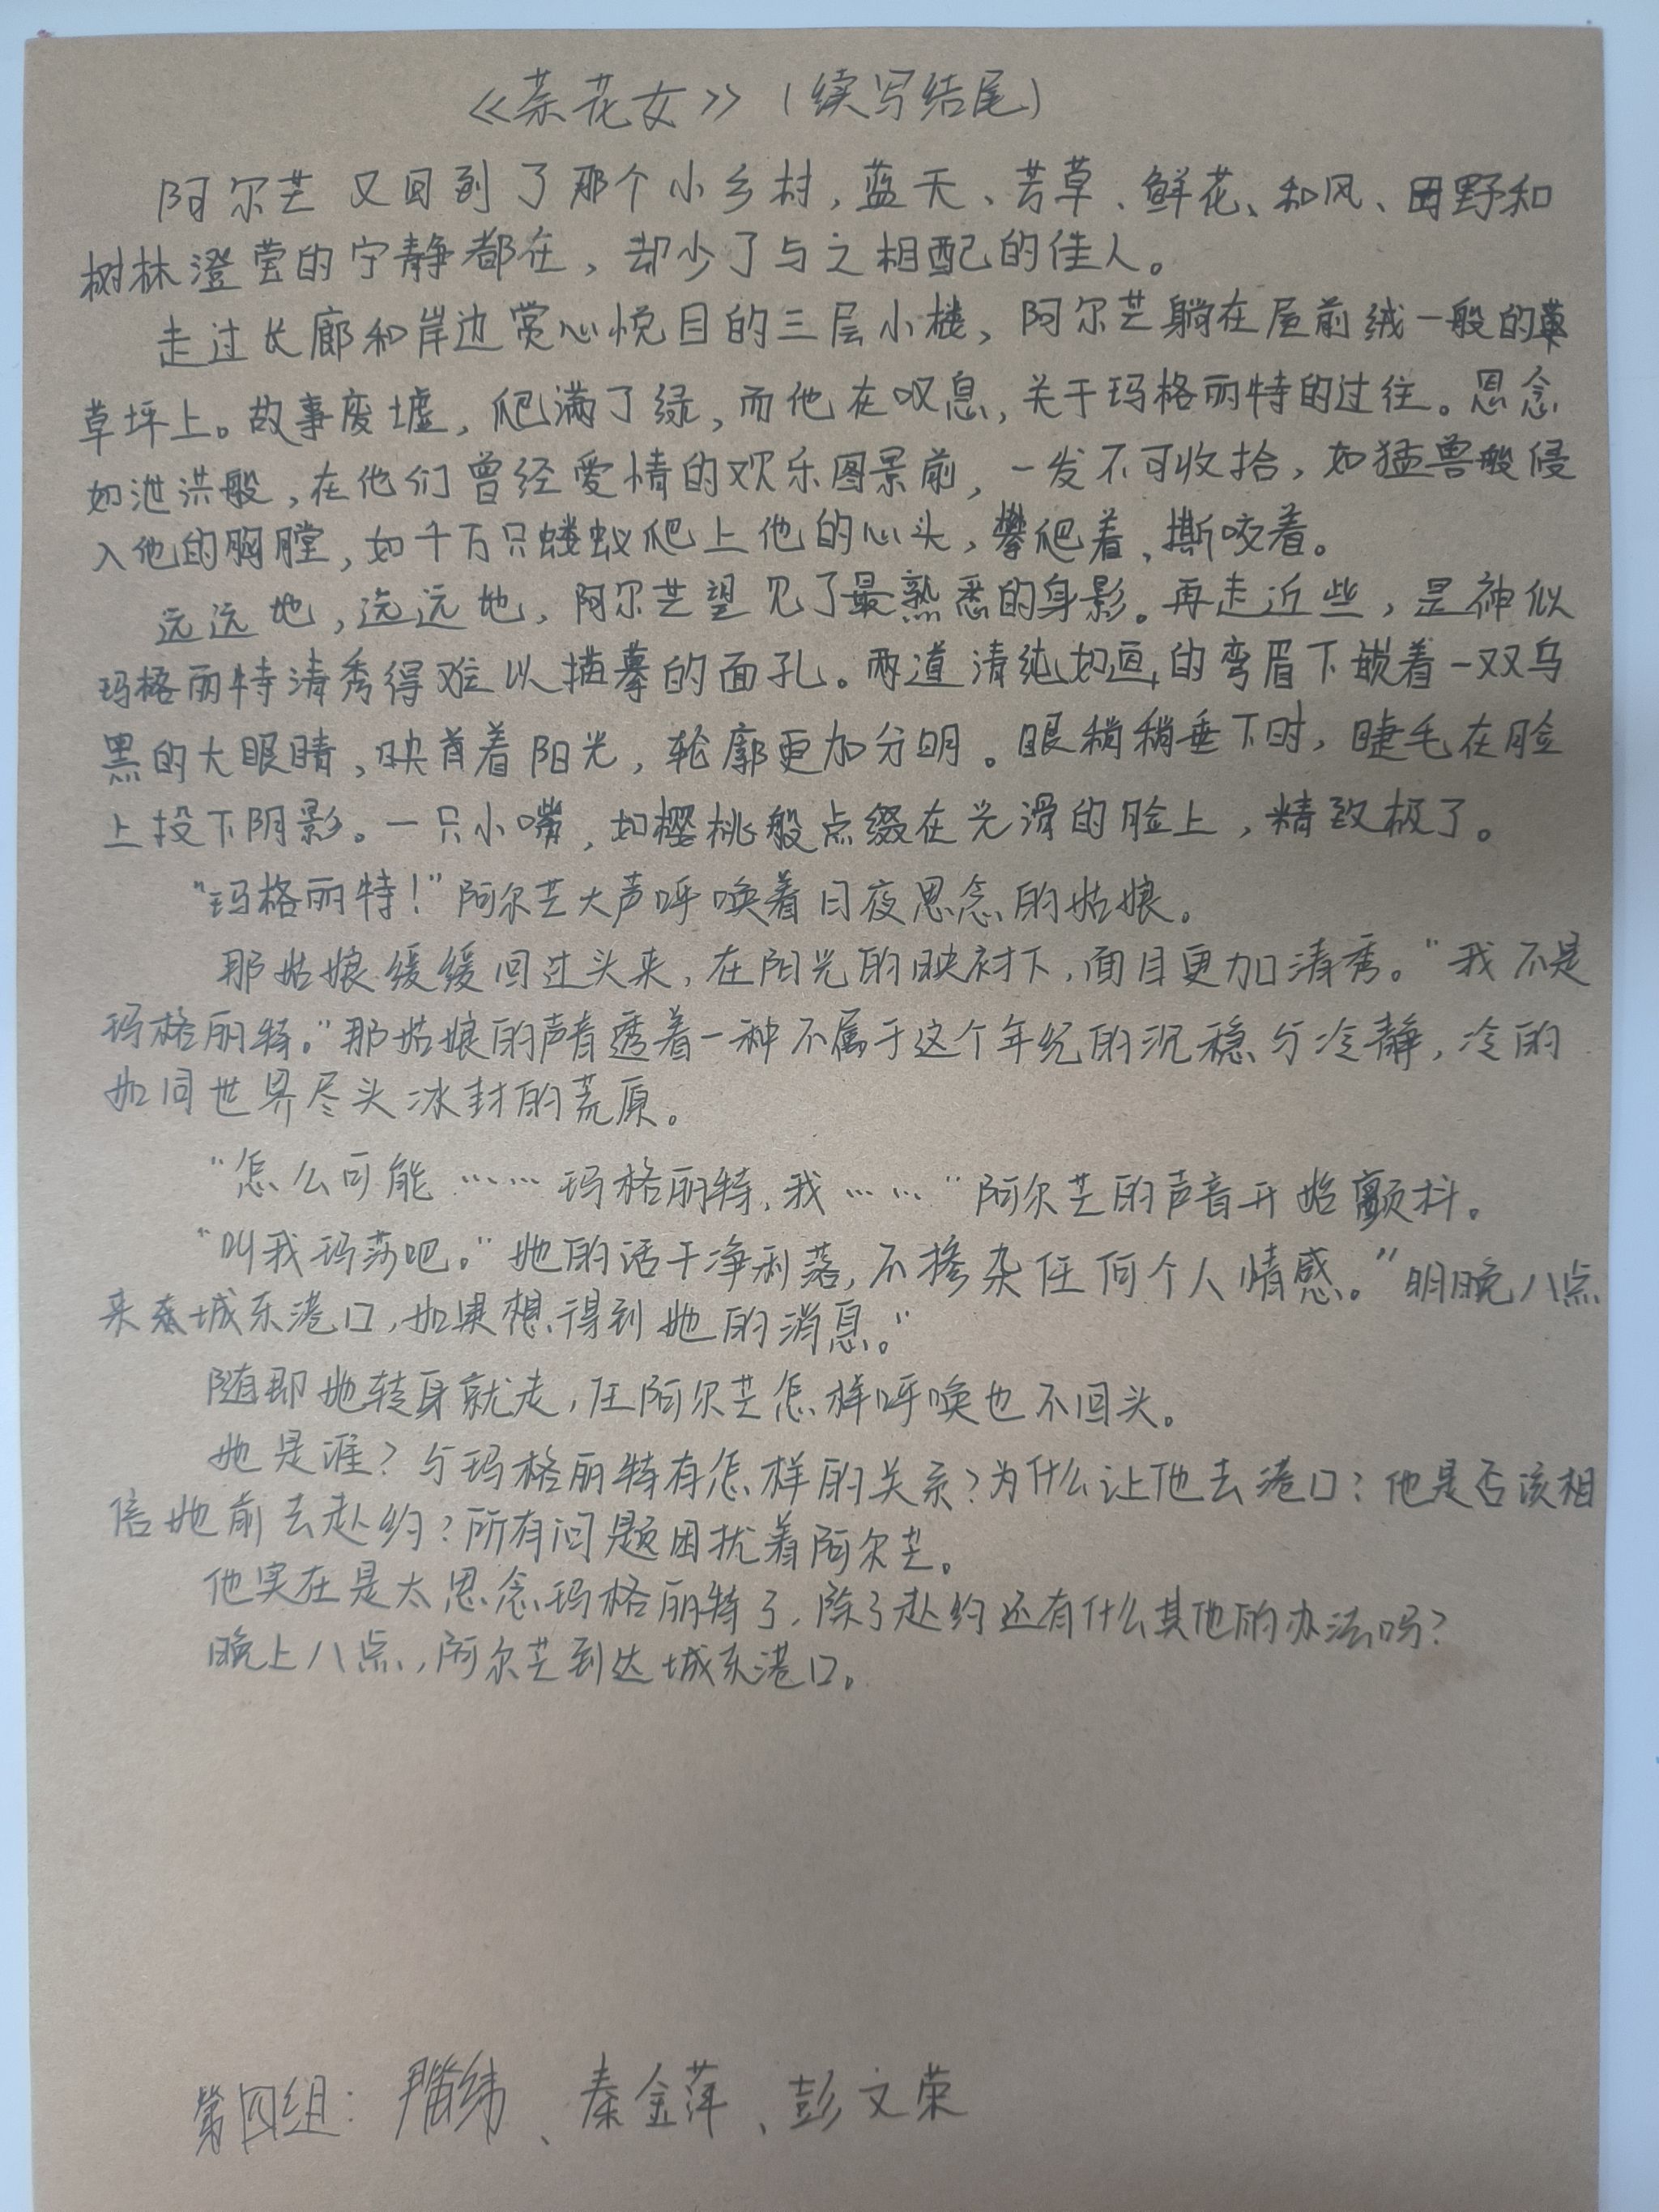 《茶花女》(续写结尾)
阿尔芒又回到了那个小乡村，蓝天、芳草、鲜花、和风、田野和
树林澄莹的宁静都在，却少了与之相配的佳人。
走过长廊和岸边赏心悦目的三层小楼，阿尔芒躺在屋前绒一般的
草坪上。故事废墟，爬满了绿，而他在叹息，关于玛格丽特的过往。思念
如泄洪般，在他们曾经爱情的欢乐图景前，一发不可收拾，如猛兽般侵
入他的胸膛，如千万只蝼蚁爬上他的心头，攀爬着，撕咬着。
远远地，远远地，阿尔芒望见了最熟悉的身影。再走近些，是神似
玛格丽特清秀得难以描摹的面孔。两道清纯如画的弯眉下嵌着一双乌
黑的大眼睛，映着阳光，轮廓更加分明。眼稍稍垂下时，睫毛在脸
上投下阴影。一只小嘴，如樱桃般点缀在光滑的脸上，精致极了。
“玛格丽特！”阿尔芒大声呼唤着日夜思念的姑娘。
那姑娘缓缓回过头来，在阳光的映衬下，面目更加清秀。“我不是
玛格丽特。”那姑娘的声音透着一种不属于这个年纪的沉稳与冷静，冷的
如同世界尽头冰封的荒原。
“怎么可能……玛格丽特，我……”阿尔芒的声音开始颤抖。
“叫我玛莎吧。”她的话干净利落，不掺杂任何个人情感。“明晚八点
来城东港口，如果想得到她的消息。”
随即她转身就走，任阿尔芒怎样呼唤也不回头。
她是谁？与玛格丽特有怎样的关系？为什么让他去港口？他是否该相
信她前去赴约？所有问题困扰着阿尔芒。
他实在是太思念玛格丽特了，除了赴约还有什么其他的办法吗？
晚上八点，阿尔芒到达城东港口。
第四组：、秦金萍、彭文荣